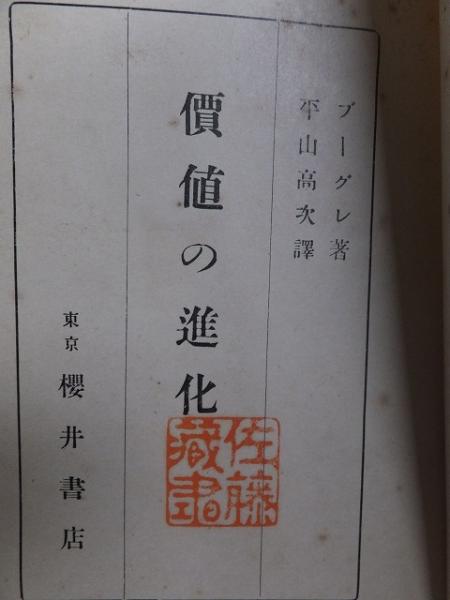 ブーグレ著
平山高次譯
價値の進化
佐藤
藏書
東京 櫻井書店